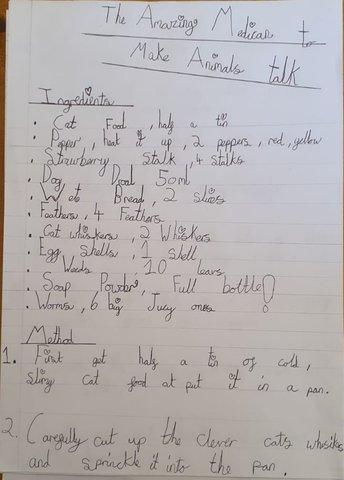 The Amazing Medican to
Make Animals talk
Ingredients
• Cat Food, half a tin
• Pepper, heat it up, 2 peppers, red, yellow
• Strawberry Stalk, 4 stalks
• Dog Drool 50ml
• Wet Bread, 2 slices
• Feathers, 4 Feathers
• Cat whiskers, 2 Whiskers
• Egg shells, 1 shell
• Weeds, 10 leavs
• Soap Powder, Full bottle!
• Worms, 6 big Jucy ones
Method
1. First get half a tin of cold,
slimy cat food at put it in a pan.
2. Carefully cut up the clever cats whiskes
and sprinckle it into the pan.